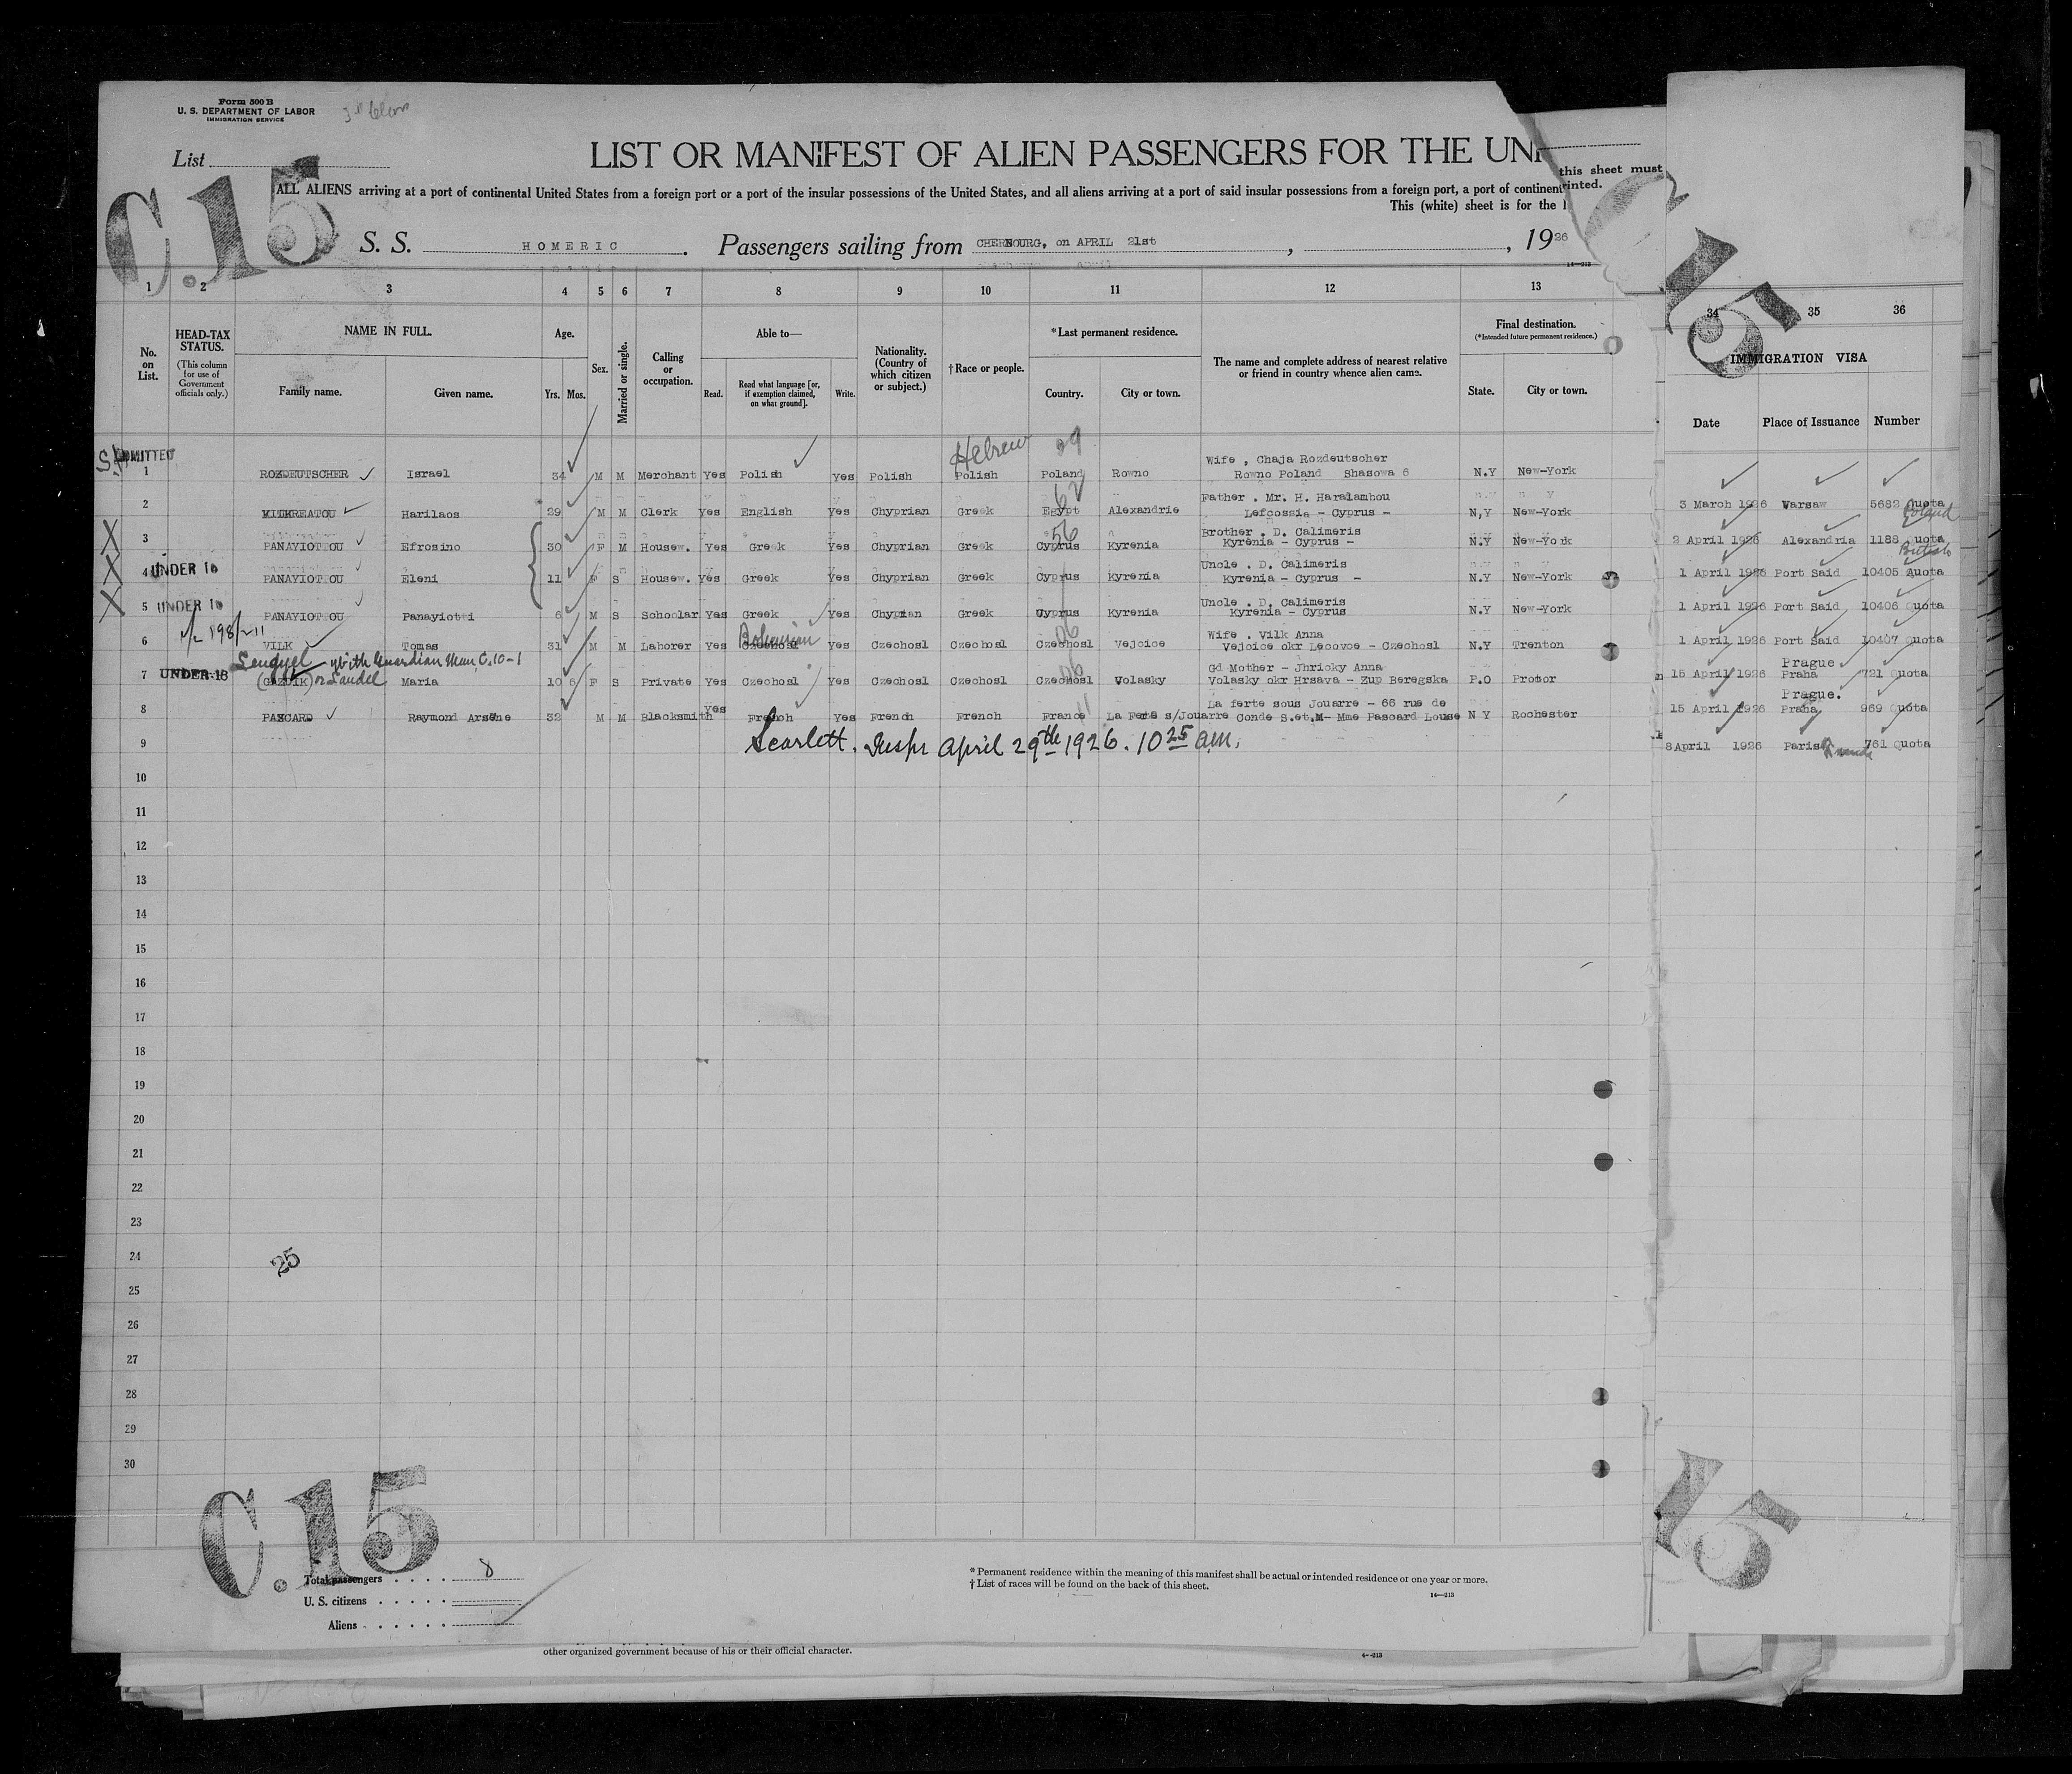 Form 500 B
U. S. DEPARTMENT OF LABOR
IMMIGRATION SERVICE
List
C.15
LIST OR MANIFEST OF ALIEN PASSENGERS FOR THE UNI
this sheet must
ALL ALIENS arriving at a port of continental United States from a foreign port or a port of the insular possessions of the United States, and all aliens arriving at a port of said insular possessions from a foreign port, a port of continent
rinted.
This (white) sheet is for the
S. S. HOMERIC. Passengers sailing from CHERBOURG, on APRIL 21st, 1926
14—213
15
1 2 3 4 5 6 7 8 9 10 11 12 13 34 35 36
No. on List.
HEAD-TAX STATUS.
(This column for use of Government officials only.)
NAME IN FULL.
Family name. Given name.
Age.
Yrs. Mos.
Sex.
Married or single.
Calling or occupation.
Able to—
Read. Read what language [or, if exemption claimed, on what ground]. Write.
Nationality. (Country of which citizen or subject.)
†Race or people.
*Last permanent residence.
Country. City or town.
The name and complete address of nearest relative or friend in country whence alien came.
Final destination.
(*Intended future permanent residence.)
State. City or town.
IMMIGRATION VISA
Date Place of Issuance Number
ADMITTED
Hebrew 39
1 ROZDEUTSCHER Israel 34 M M Merchant Yes Polish Yes Polish Polish Poland Rowno Wife , Chaja Rozdeutscher
Rowno Poland Shasowa 6 N.Y New-York
2 Harilaos 29 M M Clerk Yes English Yes Chyprian Greek Egypt Alexandrie Father . Mr. H. Haralambou
Lefcossia - Cyprus - N,Y New-York
3 March 1926 Warsaw 5682 Quota
Poland
56
X 3 PANAYIOTOU Efrosino 30 F M Housew. Yes Greek Yes Chyprian Greek Cyprus Kyrenia Brother . D. Calimeris
Kyrenia - Cyprus - N.Y New-York
2 April 1926 Alexandria 1188 Quota
British
X 4 UNDER 16 PANAYIOTOU Eleni 11 F S Housew. Yes Greek Yes Chyprian Greek Cyprus Kyrenia Uncle . D. Calimeris
Kyrenia - Cyprus - N.Y New-York
1 April 1926 Port Said 10405 Quota
X 5 UNDER 16 PANAYIOTOU Panayiotti 6 M S Schoolar Yes Greek Yes Chyprian Greek Cyprus Kyrenia Uncle . D. Calimeris
Kyrenia - Cyprus N.Y New-York
1 April 1926 Port Said 10406 Quota
Bohemian
6 VILK Tomas 31 M M Laborer Yes Czechosl Yes Czechosl Czechosl Czechosl Vejoice Wife . Vilk Anna
Vejoice okr Lecovce - Czechosl N.Y Trenton
1 April 1926 Port Said 10407 Quota
with Guardian Man, C.10-1
7 UNDER 18 (GAZDIK) or Maria 10 6 F S Private Yes Czechosl Yes Czechosl Czechosl Czechosl Volasky Gd Mother - Jhricky Anna
Volasky okr Hrsava - Zup Beregska P.O Proctor
Prague
15 April 1926 Praha 721 Quota
8 PASCARD Raymond Arsène 32 M M Blacksmith yes French Yes French French France La Ferte s/Jouarre La ferte sous Jouarre - 66 rue de
Conde S.et.M- Mme Pascard Louse N Y Rochester
Prague.
15 April 1926 Praha 969 Quota
9 Scarlett. Inspr April 29th 1926. 10 25 am.
8 April 1926 Paris 761 Quota
10
11
12
13
14
15
16
17
18
19
20
21
22
23
24
25
25
26
27
28
29
30
C.15
15
Total passengers 8
U. S. citizens
Aliens
* Permanent residence within the meaning of this manifest shall be actual or intended residence of one year or more.
† List of races will be found on the back of this sheet.
14—213
other organized government because of his or their official character.